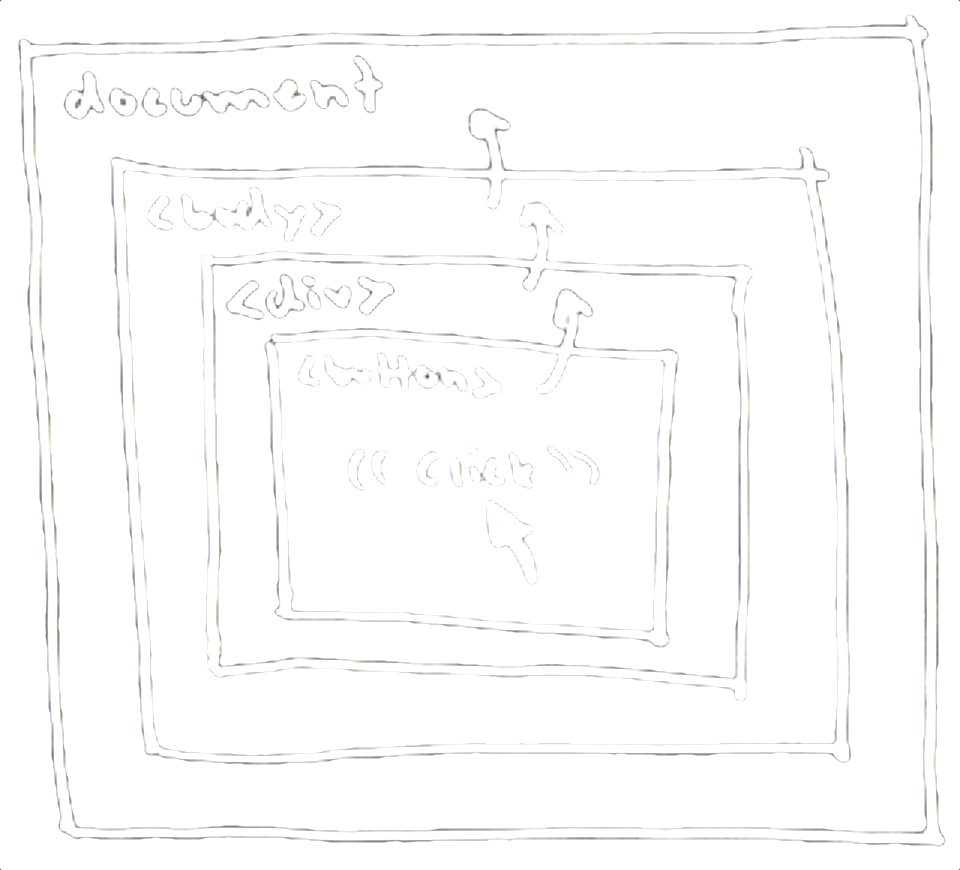 document
<body>
<div>
<button>
(( Click ))